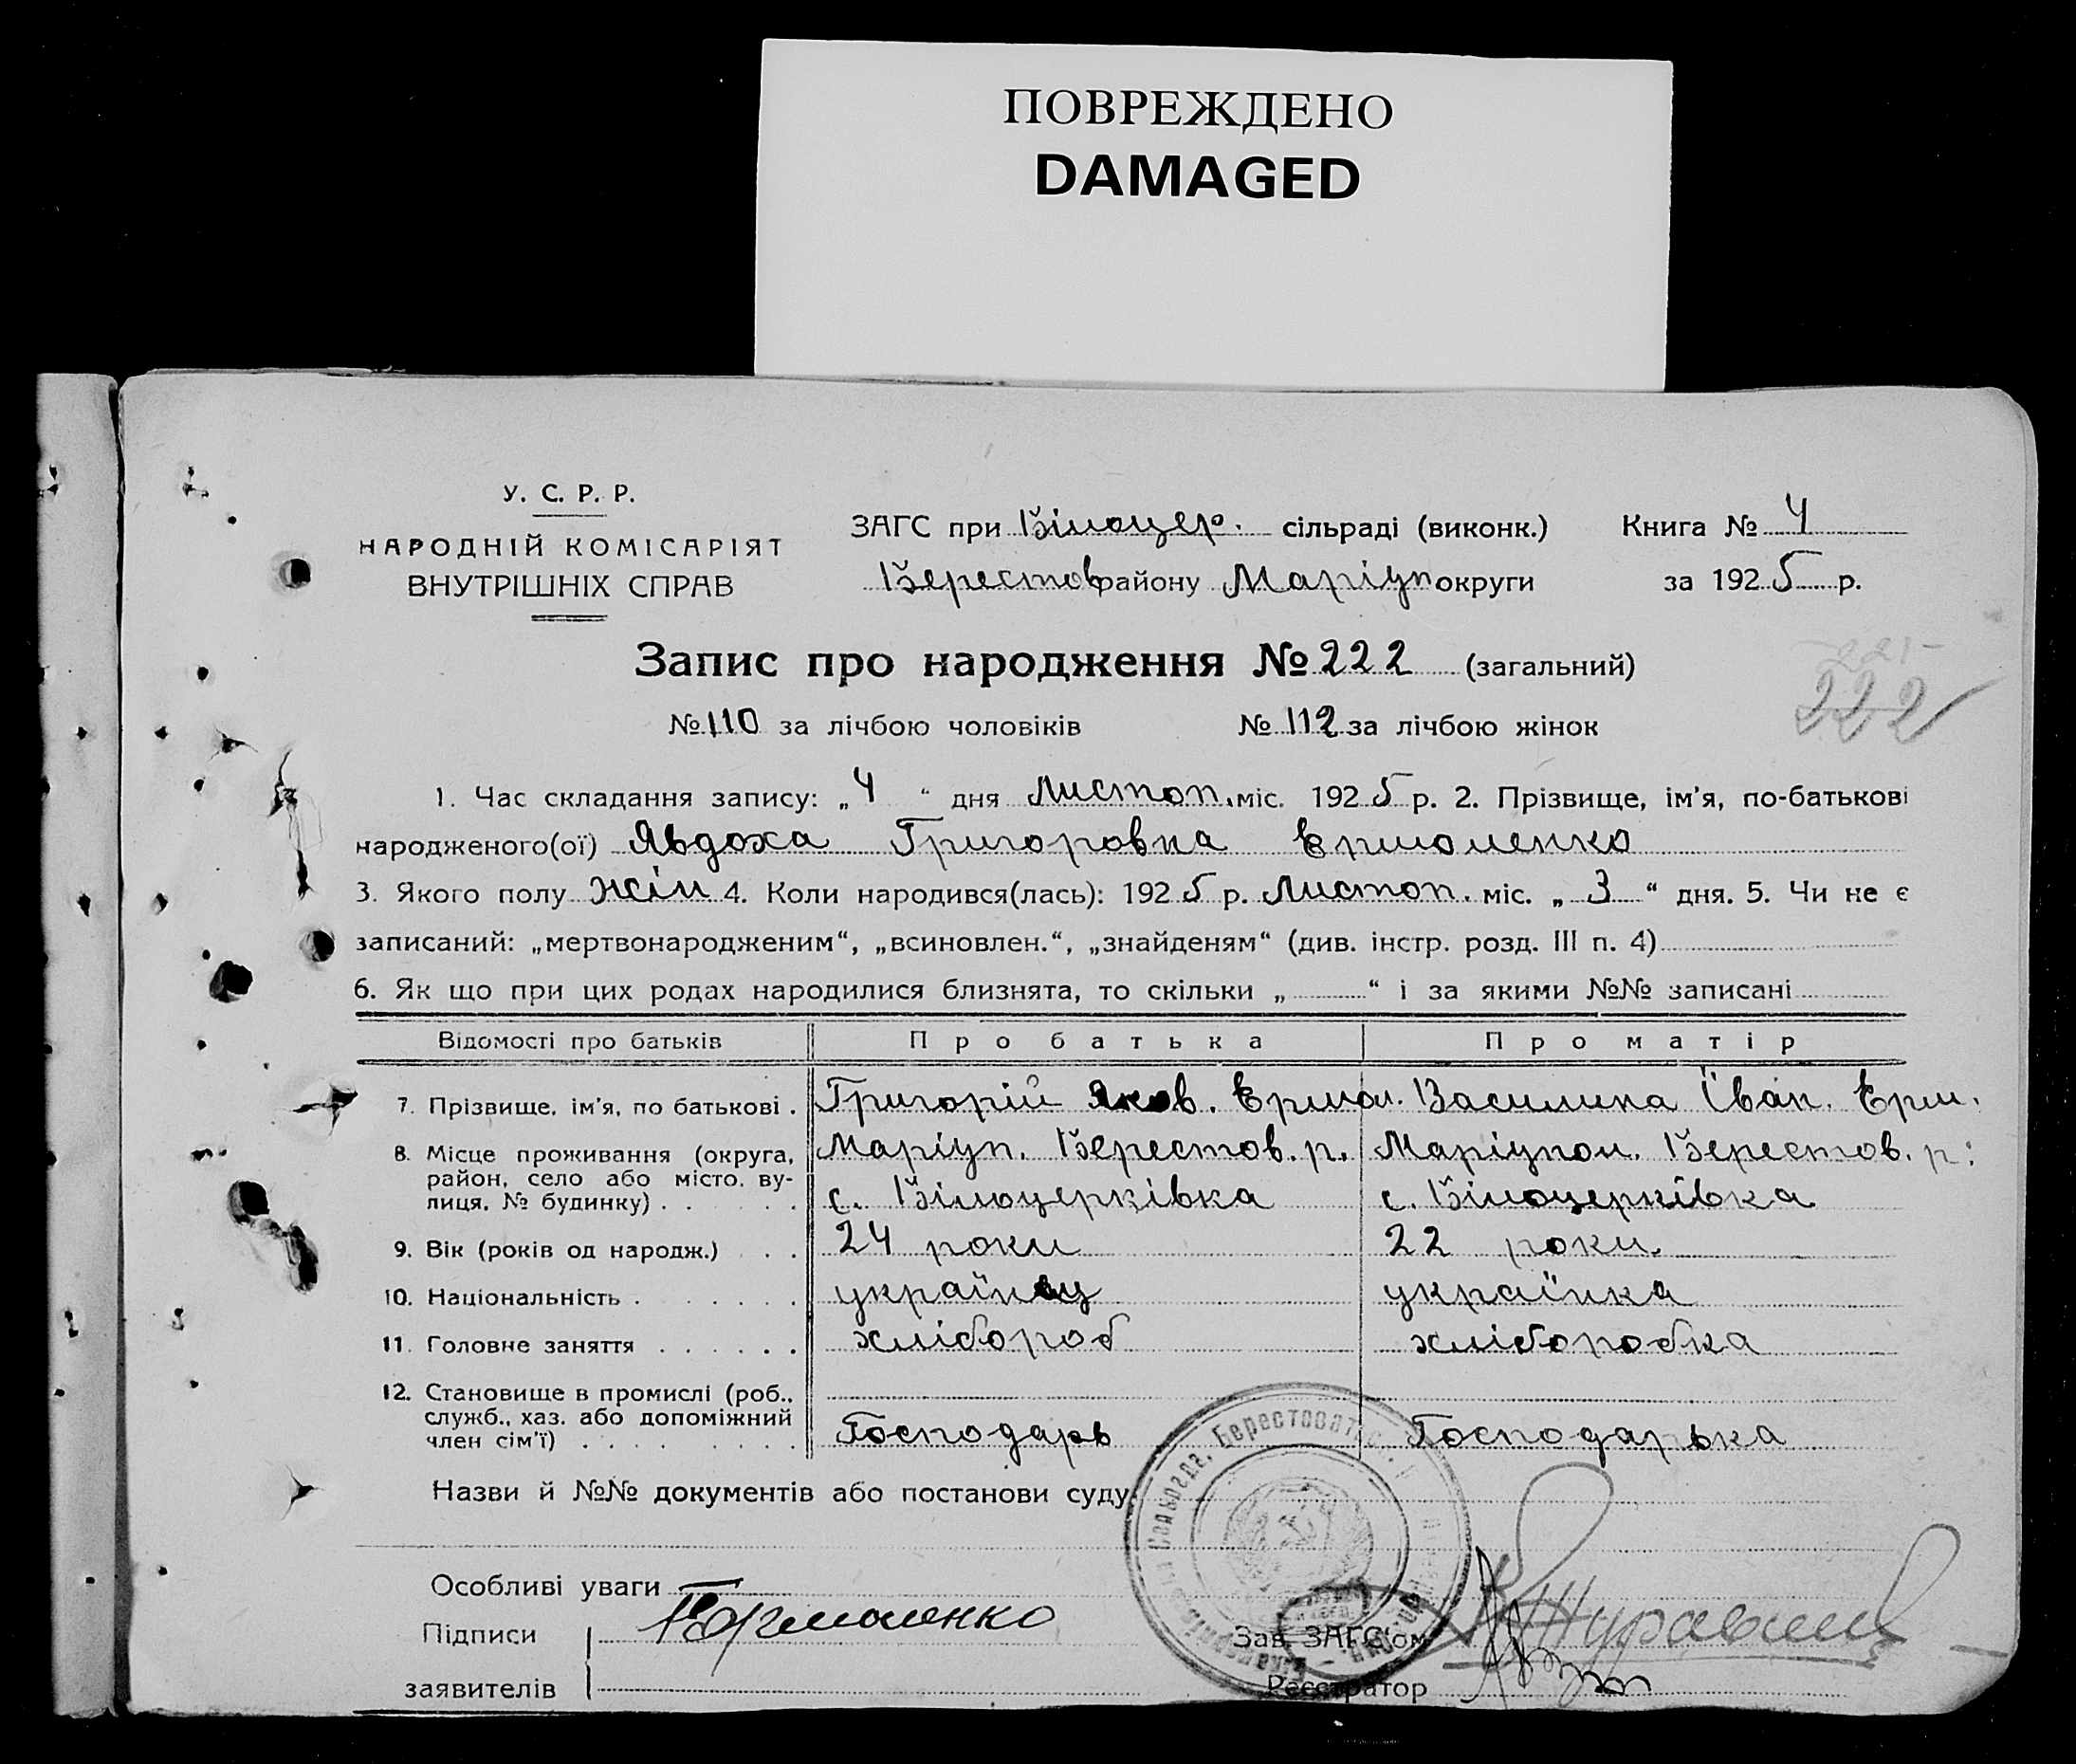 ПОВРЕЖДЕНО
DAMAGED
У. С. Р. Р.
НАРОДНІЙ КОМІСАРІЯТ
ВНУТРІШНІХ СПРАВ
ЗАГС при Білоцер. сільраді (виконк.) Книга № 4
Берестов району Маріуп округи за 1925 р.
Запис про народження № 222 (загальний)
221
222
№ 110 за лічбою чоловіків № 112 за лічбою жінок
1. Час складання запису: „4“ дня Листоп. міс. 1925 р. 2. Прізвище, ім'я, по-батькові
народженого(ої) Явдоха Григоровна Ермоленко
3. Якого полу жін 4. Коли народився(лась): 1925 р. Листоп. міс. „3“ дня. 5. Чи не є
записаний: „мертвонародженим“, „всиновлен.“, „знайденям“ (див. інстр. розд. III п. 4)
6. Як що при цих родах народилися близнята, то скільки „ “ і за якими №№ записані
Відомості про батьків Про батька Про матір
7. Прізвище, ім'я, по батькові . Григорій Яков. Ермол. Василина Іван. Ерм.
8. Місце проживання (округа, Маріуп. Берестов. р. Маріупол. Берестов. р:
район, село або місто, ву-
лиця, № будинку) . . . . с. Білоцерківка с. Білоцерківка
9. Вік (років од народж.) . . 24 роки 22 роки.
10. Національність . . . . . . . українец українка
11. Головне заняття . . . . . . хлібороб хліборобка
12. Становище в промислі (роб.,
служб., хаз. або допоміжний
член сім'ї) . . . . . . . . Господарь Господарька
Назви й №№ документів або постанови суду
Особливі уваги
Підписи Г Ермоленко Зав. ЗАГС'ом
заявителів Реєстратор
Берестоват